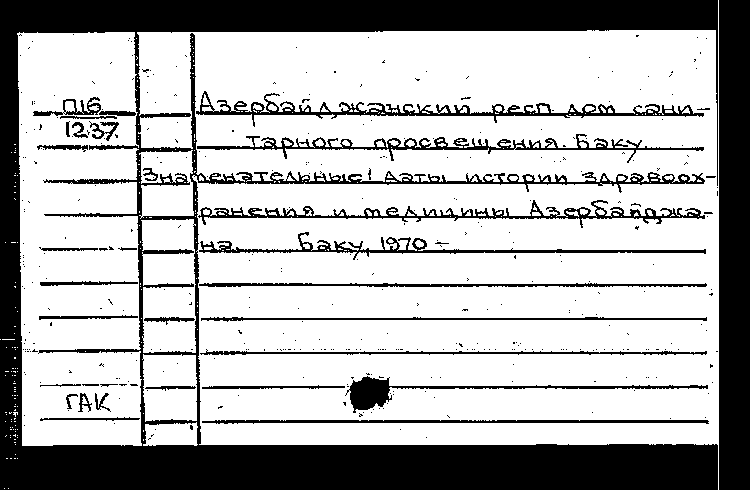 П16
1237
Азербайджанский респ дом сани-
тарного просвещения. Баку.
Знаменательные! даты истории здравоох-
ранения и медицины Азербайджа-
на. Баку, 1970 -
ГАК